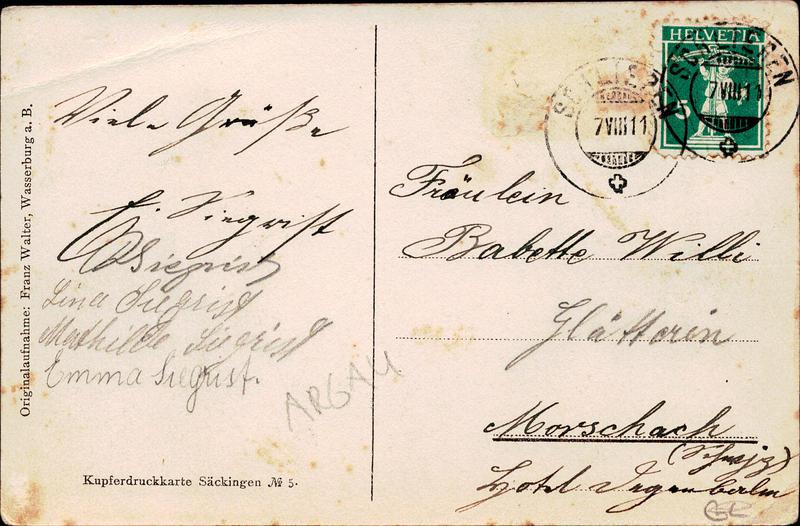 HELVETIA
5
SCHLIEREN
7 VIII 11
SCHLIEREN
7 VIII 11
Viele Grüße
E. Siegrist
Siegrist
Lina Siegrist
Mathilde Siegrist
Emma Siegrist.
ARGAU
Fräulein
Babette Willi
Glätterin
Morschach
(Schwyz)
Hotel
Originalaufnahme: Franz Walter, Wasserburg a. B.
Kupferdruckkarte Säckingen № 5.